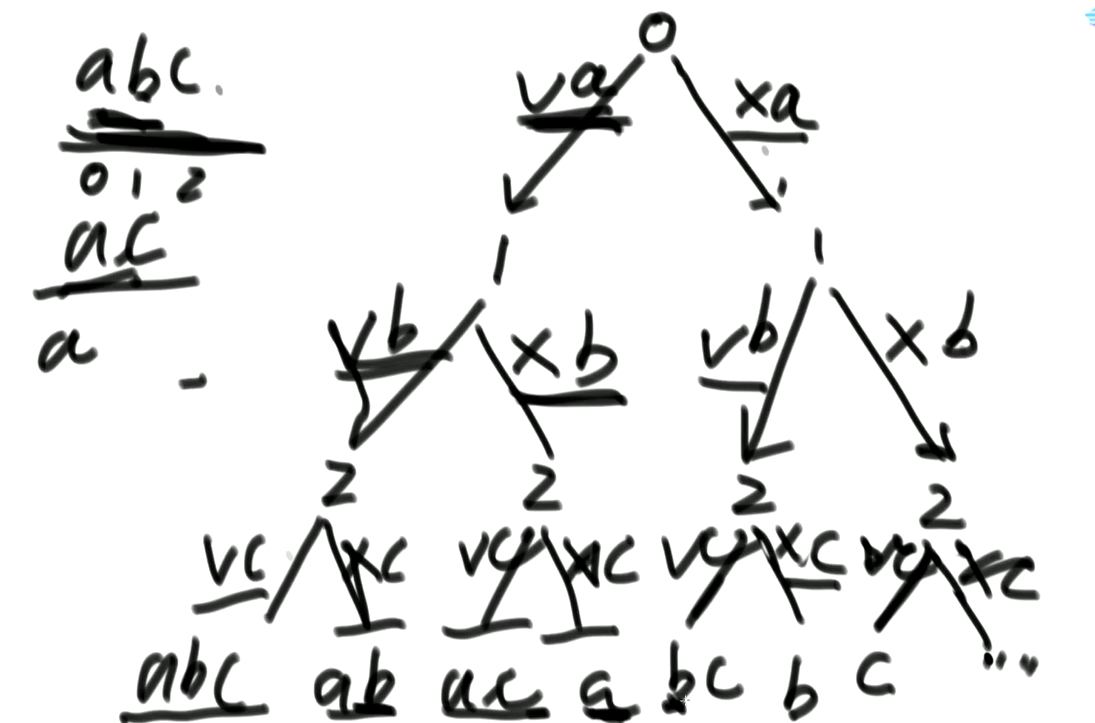 abc.
0 1 2
ac
a
0
va xa
1 1
vb xb vb xb
2 2 2 2
vc xc vc xc vc xc vc xc
abc ab ac a bc b c ""